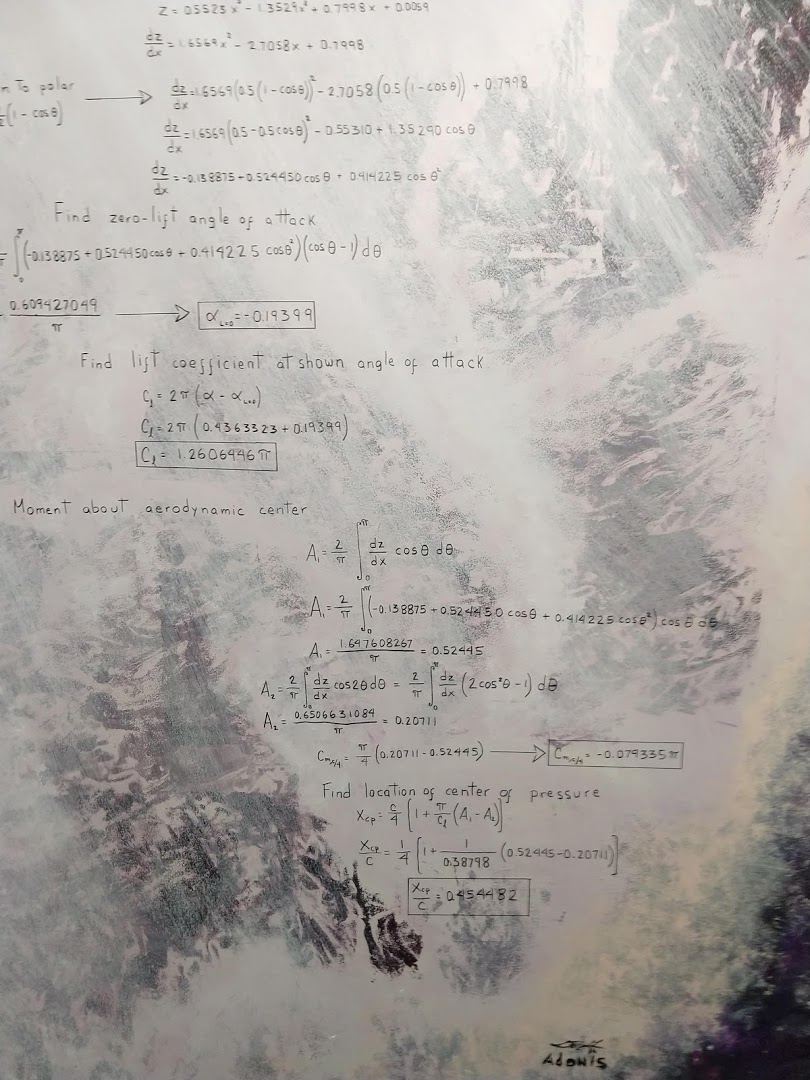 Z = 0.5523 x³ - 1.3529x² + 0.7998 x + 0.0059
dz/dx = 1.6569x² - 2.7058x + 0.7998
To polar
(1 - cosθ)
dz/dx = 1.6569(0.5(1-cosθ))² - 2.7058(0.5(1-cosθ)) + 0.7998
dz/dx = 1.6569(0.5-0.5cosθ)² - 0.55310 + 1.35290 cosθ
dz/dx = -0.138875 + 0.524450 cosθ + 0.414225 cosθ²
Find zero-lift angle of attack
= ∫₀^π (-0.138875 + 0.524450cosθ + 0.414225 cosθ²)(cosθ - 1) dθ
0.609427049/π → α_L=0 = -0.19399
Find lift coefficient at shown angle of attack
C_l = 2π (α - α_L=0)
C_l = 2π (0.4363323 + 0.19399)
C_l = 1.2606446 π
Moment about aerodynamic center
A₁ = 2/π ∫₀^π dz/dx cosθ dθ
A₁ = 2/π ∫₀^π (-0.138875 + 0.524450 cosθ + 0.414225 cosθ²) cosθ dθ
A₁ = 1.647608267/π = 0.52445
A₂ = 2/π ∫₀^π dz/dx cos2θdθ = 2/π ∫₀^π dz/dx (2cos²θ - 1) dθ
A₂ = 0.6506631084/π = 0.20711
C_m,c/4 = π/4 (0.20711 - 0.52445) → C_m,c/4 = -0.079335 π
Find location of center of pressure
X_cp = c/4 [1 + π/C_l (A₁ - A₂)]
X_cp/C = 1/4 [1 + 1/0.38798 (0.52445-0.20711)]
X_cp/C = 0.454482
Adonis